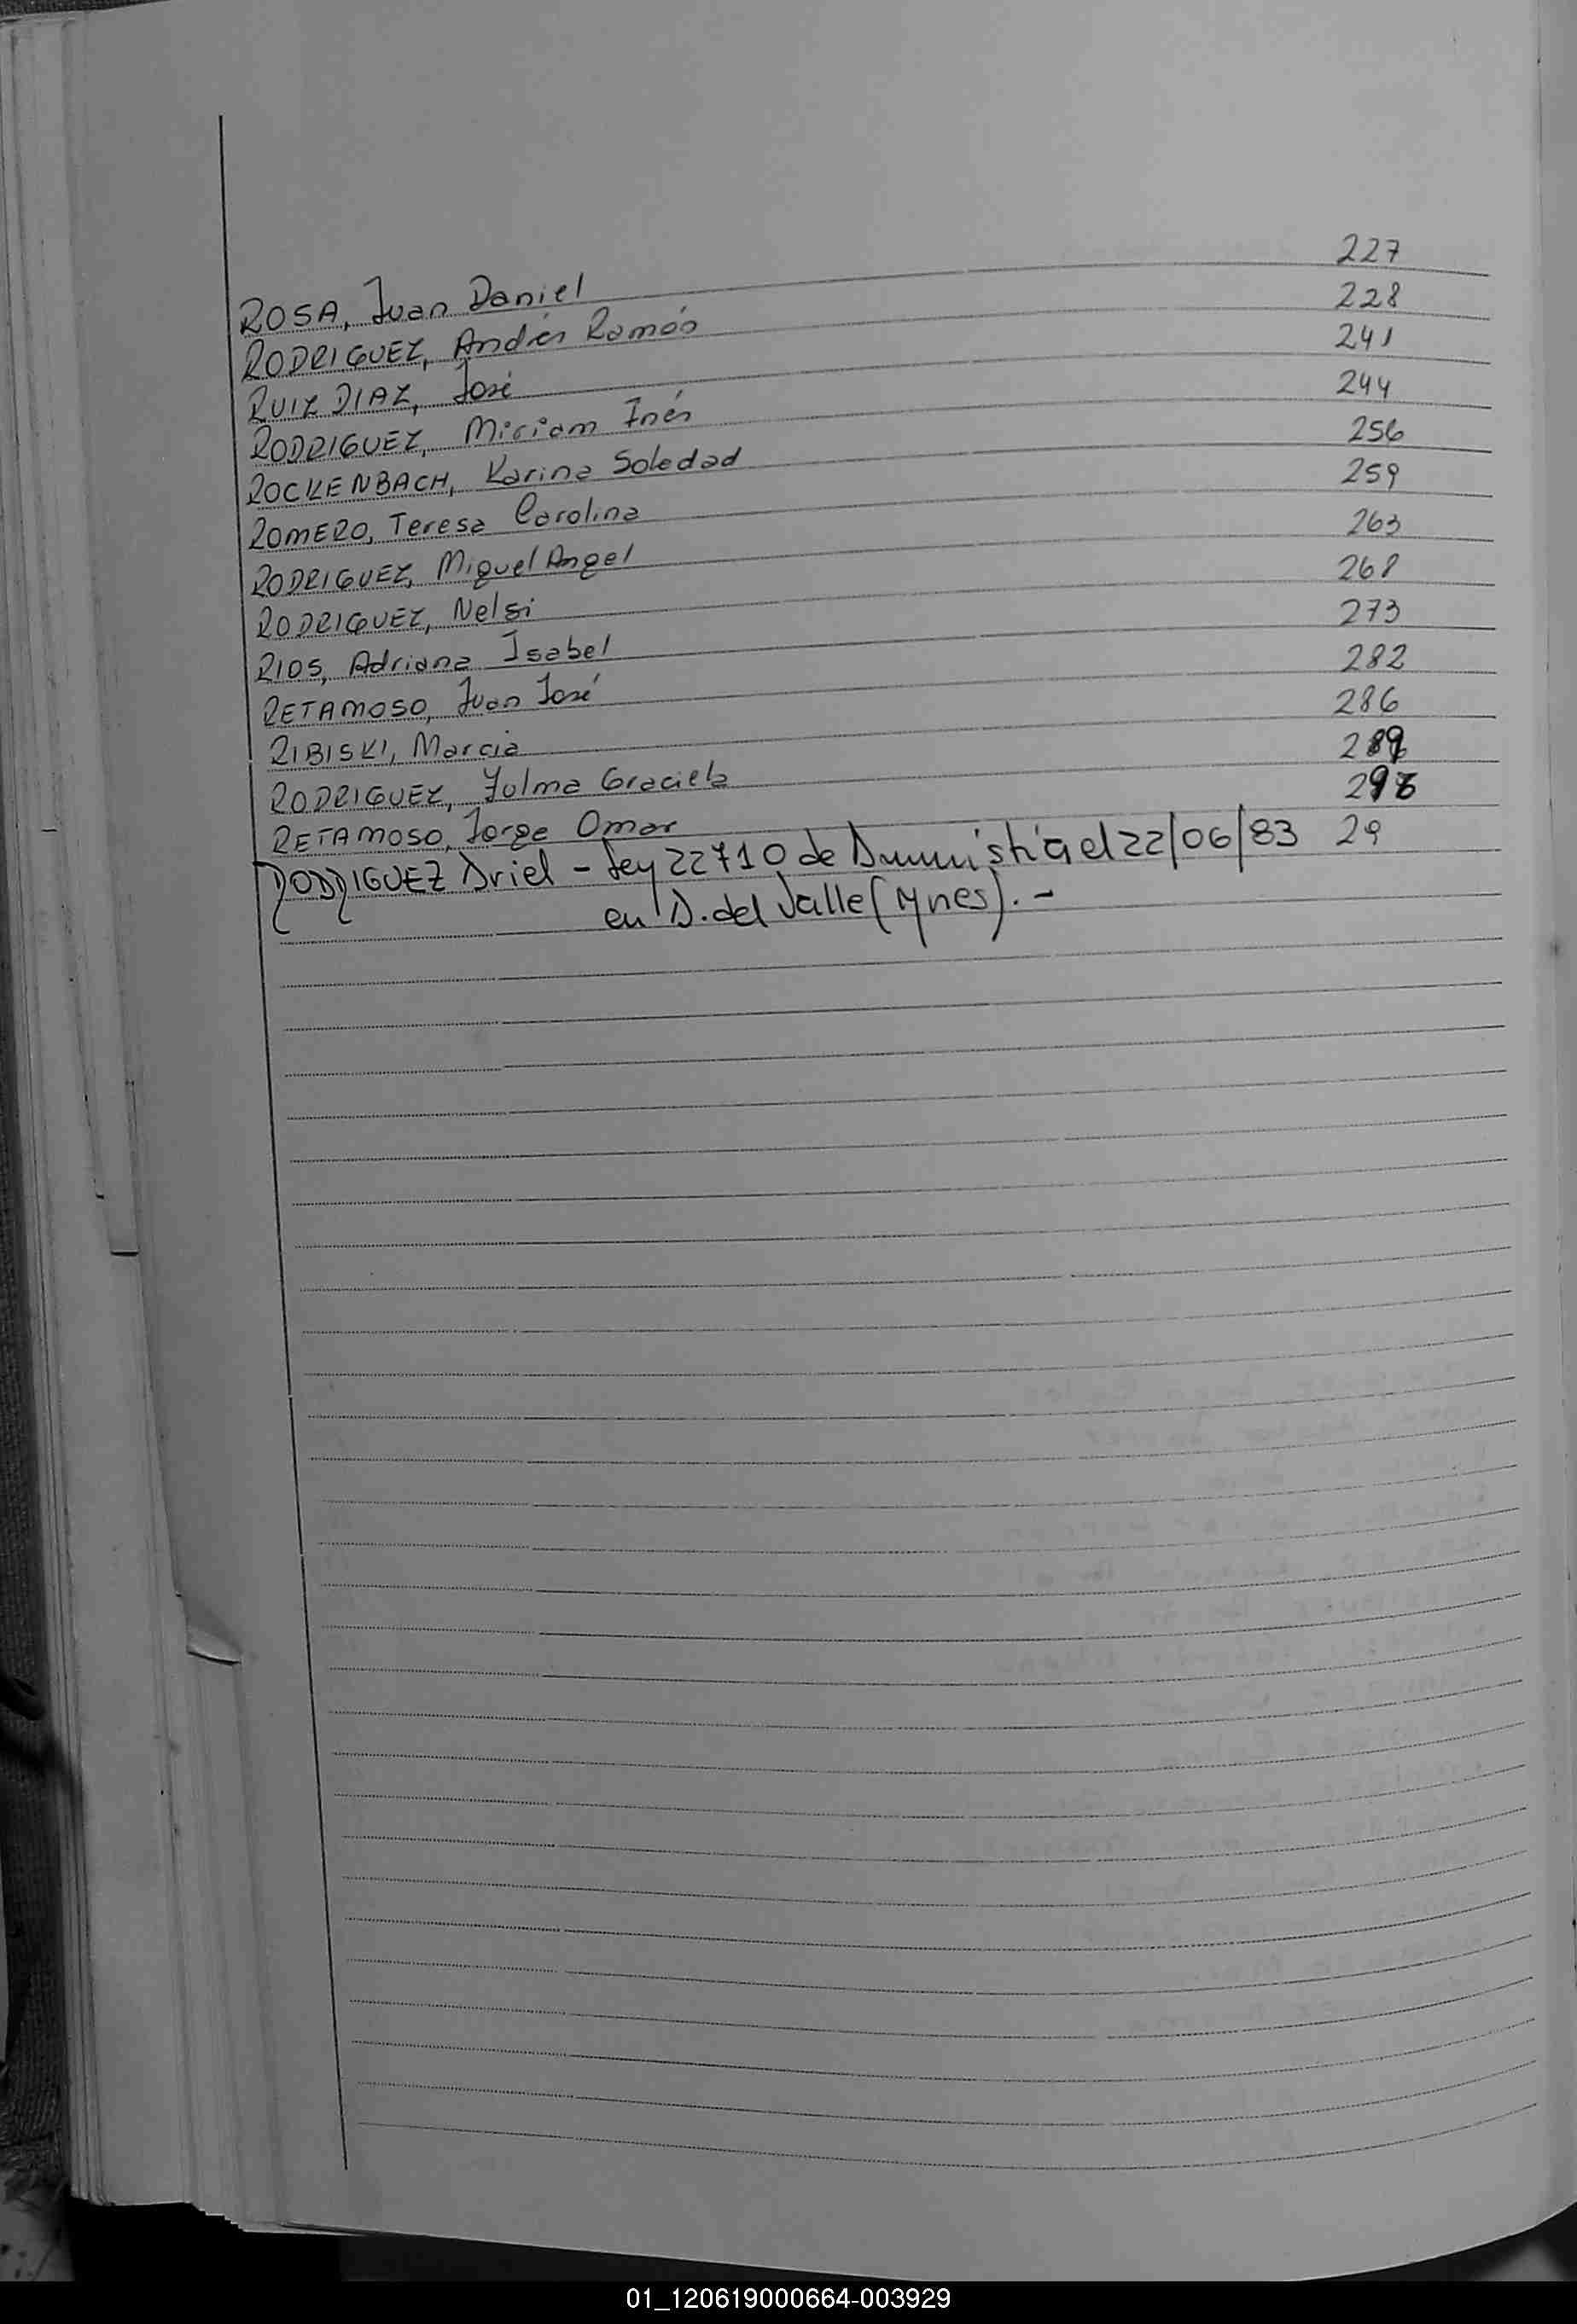 ROSA, Juan Daniel 227
RODRIGUEZ, Andrés Ramón 228
RUIZ DIAZ, José 241
RODRIGUEZ, Miriam Inés 244
ROCKENBACH, Karina Soledad 256
ROMERO, Teresa Carolina 259
RODRIGUEZ, Miguel Angel 263
RODRIGUEZ, Nelsi 268
RIOS, Adriana Isabel 273
RETAMOSO, Juan José 282
RIBISKI, Marcia 286
RODRIGUEZ, Zulma Graciela
RETAMOSO, Jorge Omar
RODRIGUEZ Ariel - Ley 22710 de Amnistía el 22/06/83 29
en A. del Valle (Mnes). -
01_120619000664-003929